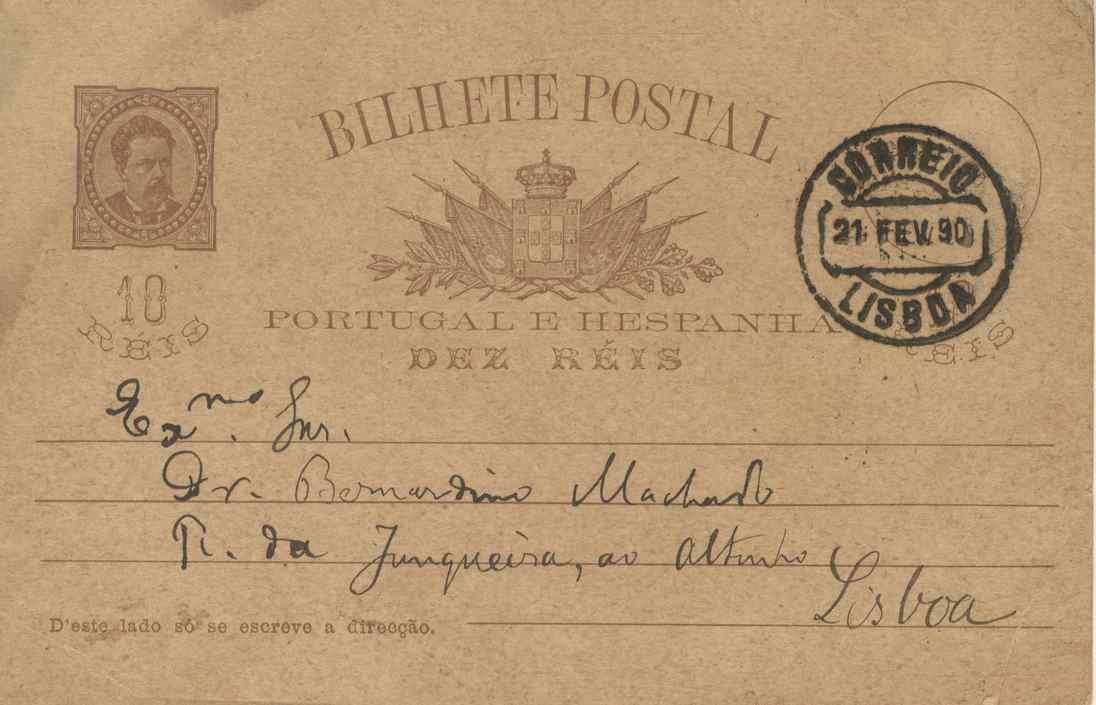 BILHETE POSTAL
10
RÉIS
CORREIO
21 FEV. 90
LISBOA
PORTUGAL E HESPANHA
DEZ RÉIS
REIS
Ex.mo Snr.
Dr. Bernardino Machado
R. da Junqueira, ao Altinho
Lisboa
D'este lado só se escreve a direcção.